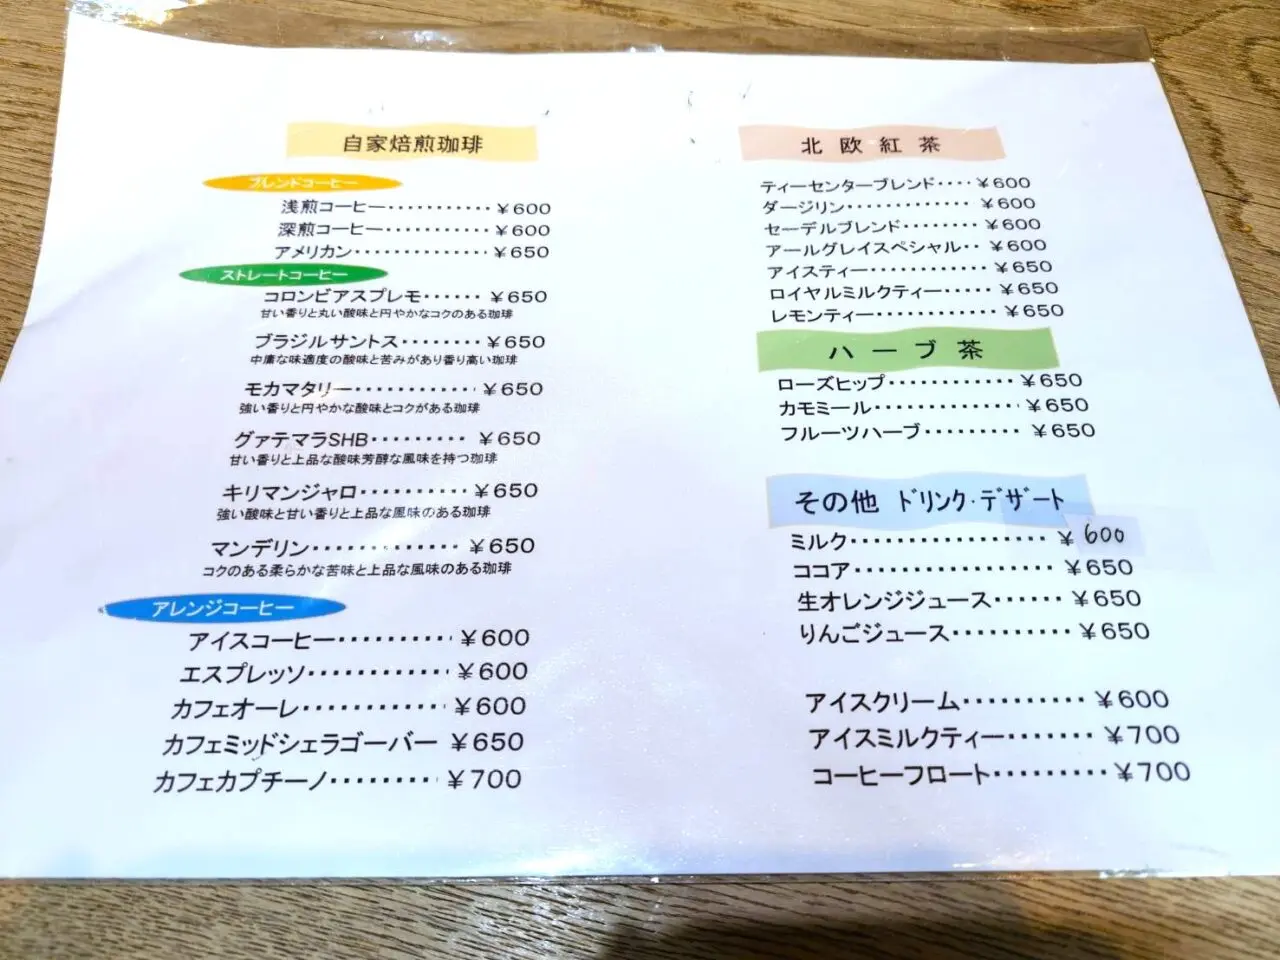 自家焙煎珈琲
ブレンドコーヒー
浅煎コーヒー・・・・・・・・・・・￥600
深煎コーヒー・・・・・・・・・・・￥600
アメリカン・・・・・・・・・・・・・￥650
ストレートコーヒー
コロンビアスプレモ・・・・・・￥650
甘い香りと丸い酸味と円やかなコクのある珈琲
ブラジルサントス・・・・・・・・￥650
中庸な味適度の酸味と苦みがあり香り高い珈琲
モカマタリー・・・・・・・・・・・・￥650
強い香りと円やかな酸味とコクがある珈琲
グァテマラSHB・・・・・・・・・￥650
甘い香りと上品な酸味芳醇な風味を持つ珈琲
キリマンジャロ・・・・・・・・・・￥650
強い酸味と甘い香りと上品な風味のある珈琲
マンデリン・・・・・・・・・・・・・￥650
コクのある柔らかな苦味と上品な風味のある珈琲
アレンジコーヒー
アイスコーヒー・・・・・・・・・・￥600
エスプレッソ・・・・・・・・・・・・￥600
カフェオーレ・・・・・・・・・・・・￥600
カフェミッドシェラゴーバー ￥650
カフェカプチーノ・・・・・・・・￥700
北欧紅茶
ティーセンターブレンド・・・・￥600
ダージリン・・・・・・・・・・・・・￥600
セーデルブレンド・・・・・・・・￥600
アールグレイスペシャル・・￥600
アイスティー・・・・・・・・・・・・￥650
ロイヤルミルクティー・・・・・￥650
レモンティー・・・・・・・・・・・・￥650
ハーブ茶
ローズヒップ・・・・・・・・・・・・￥650
カモミール・・・・・・・・・・・・・・￥650
フルーツハーブ・・・・・・・・・￥650
その他 ドリンク・デザート
ミルク・・・・・・・・・・・・・・・・・￥600
ココア・・・・・・・・・・・・・・・・￥650
生オレンジジュース・・・・・・￥650
りんごジュース・・・・・・・・・・￥650
アイスクリーム・・・・・・・・・・￥600
アイスミルクティー・・・・・・・￥700
コーヒーフロート・・・・・・・・・￥700